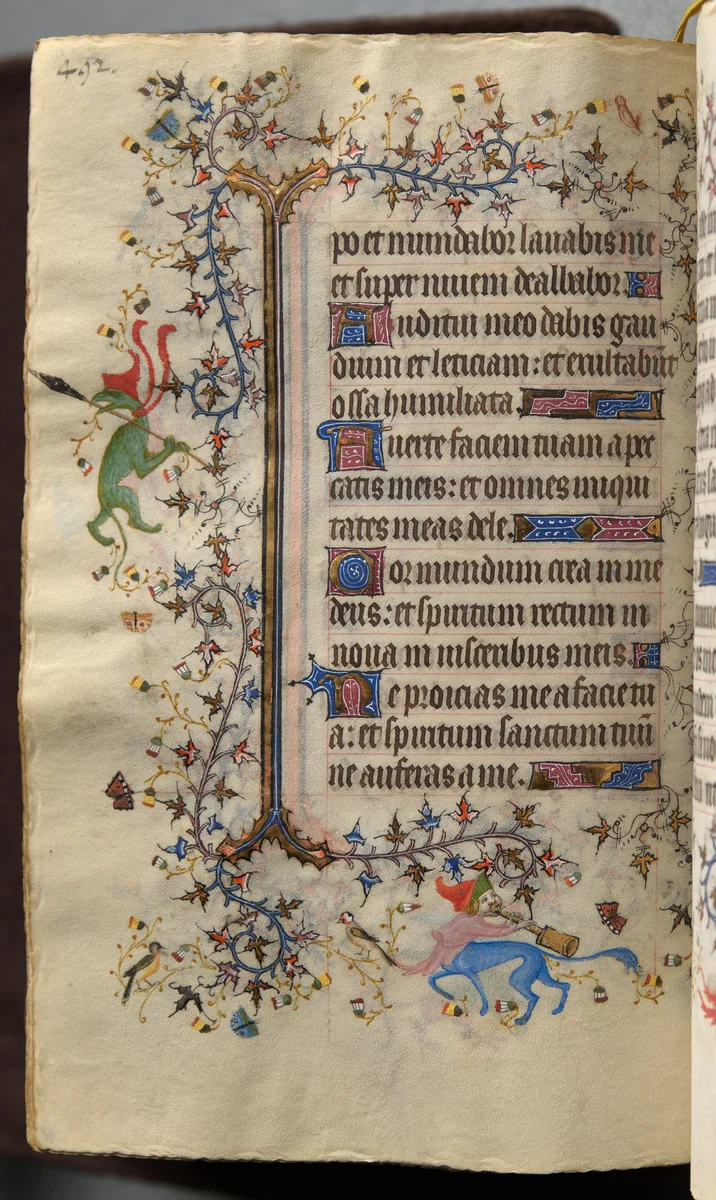 492.
po et mundabor lauabis me
et super niuem dealbabor.
Auditui meo dabis gau
dium et leticiam: et exultabūt
ossa humiliata.
Auerte faciem tuam a pec
catis meis: et omnes iniqui
tates meas dele.
Cor mundum crea in me
deus: et spiritum rectum in
noua in uisceribus meis.
Ne proicias me a facie tu
a: et spiritum sanctum tuū
ne auferas a me.